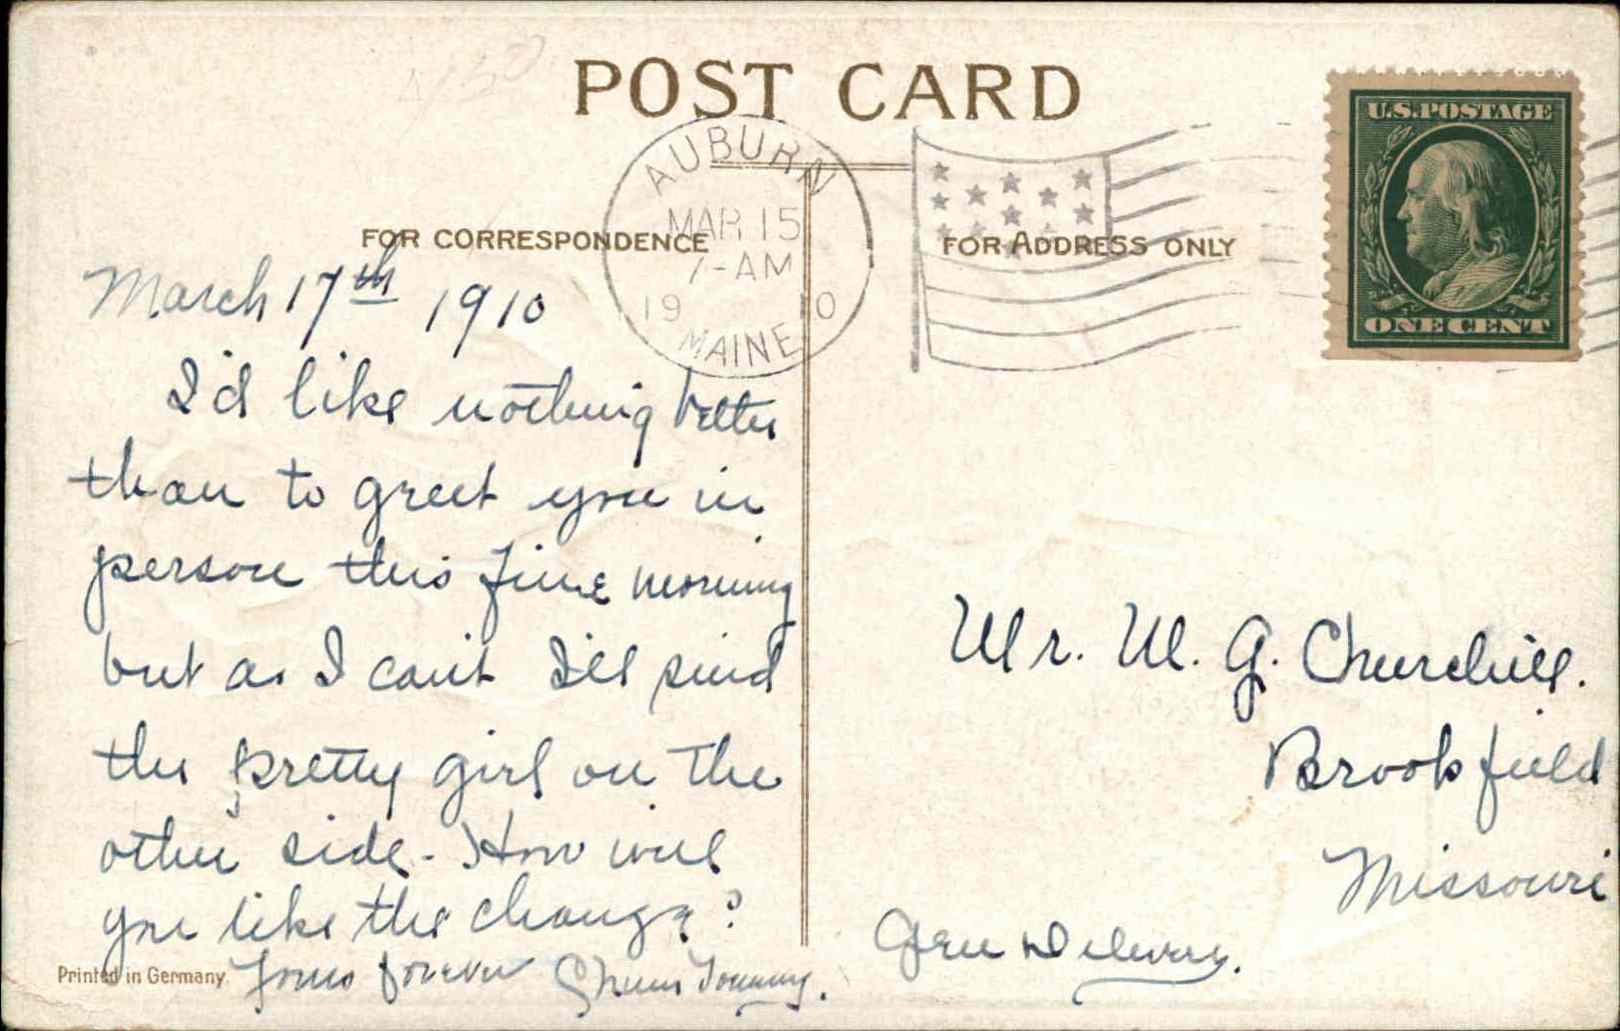 POST CARD
AUBURN
MAR 15
7-AM
19 10
MAINE
U.S.POSTAGE
ONE CENT
FOR CORRESPONDENCE
FOR ADDRESS ONLY
March 17th 1910
I'd like nothing better
than to greet you in
person this fine morning
but as I can't I'll send
the pretty girl on the
other side. How will
you like the change?
Yours forever Chum Tommy.
Printed in Germany
Mr. W. G. Churchill.
Brookfield
Missouri
Gen Delivery.